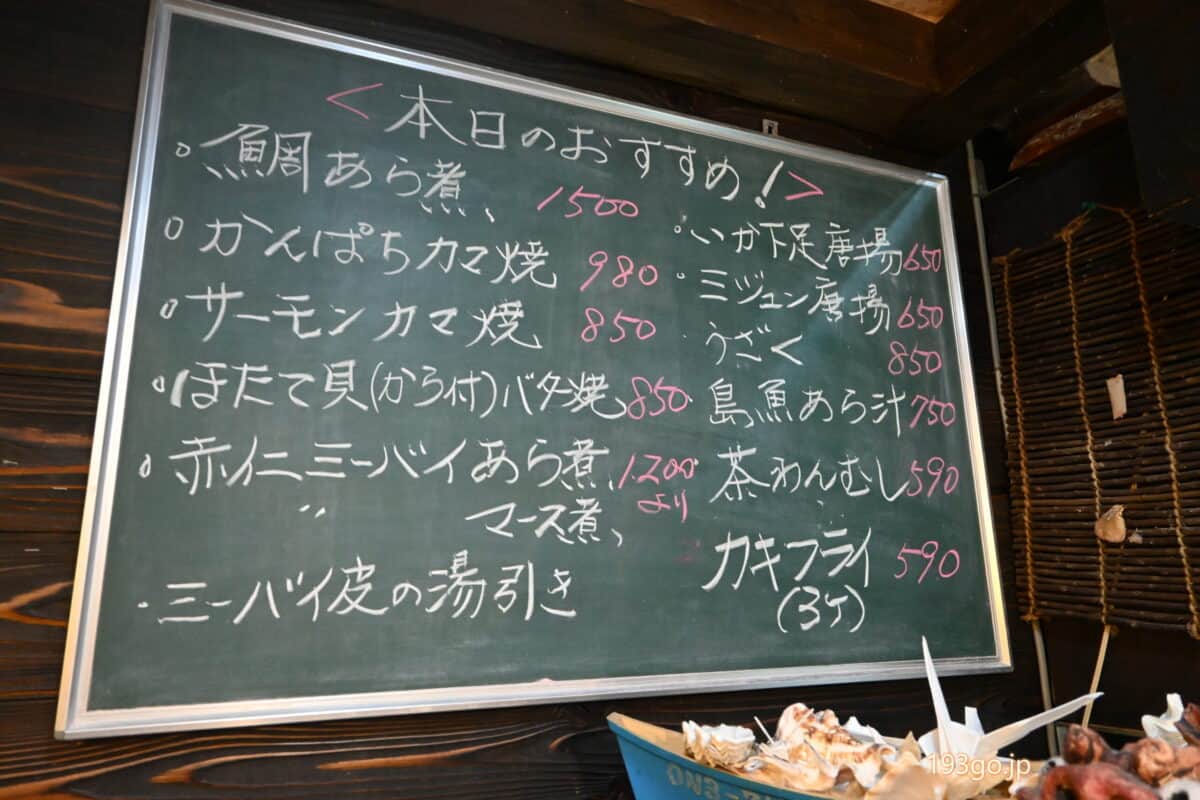 ＜本日のおすすめ！＞
○鯛あら煮、 1500
○かんぱちカマ焼 980
○サーモンカマ焼 850
○ほたて貝(から付)バター焼 850
○赤仁ミーバイあら煮、1,200より
〃 マース煮、
・ミーバイ皮の湯引き
・いか下足唐揚 650
・ミジュン唐揚 650
・うざく 850
・島魚あら汁 750
茶わんむし 590
カキフライ 590
(3ケ)
193go.jp